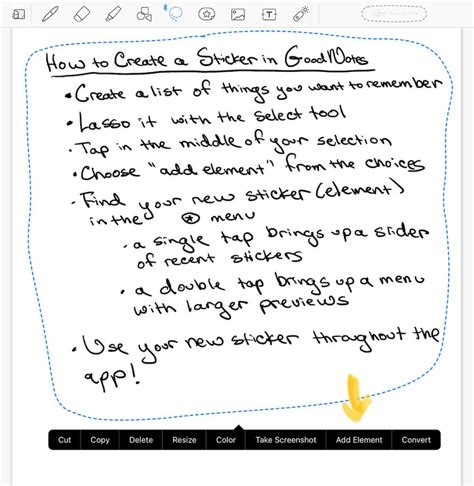 How to Create a Sticker in GoodNotes
• Create a list of things you want to remember
• Lasso it with the select tool
• Tap in the middle of your selection
• Choose "add element" from the choices
• Find your new sticker (element)
in the ⍟ menu
• a single tap brings up a slider
of recent stickers
• a double tap brings up a menu
with larger previews
• Use your new sticker throughout the
app!
Cut Copy Delete Resize Color Take Screenshot Add Element Convert